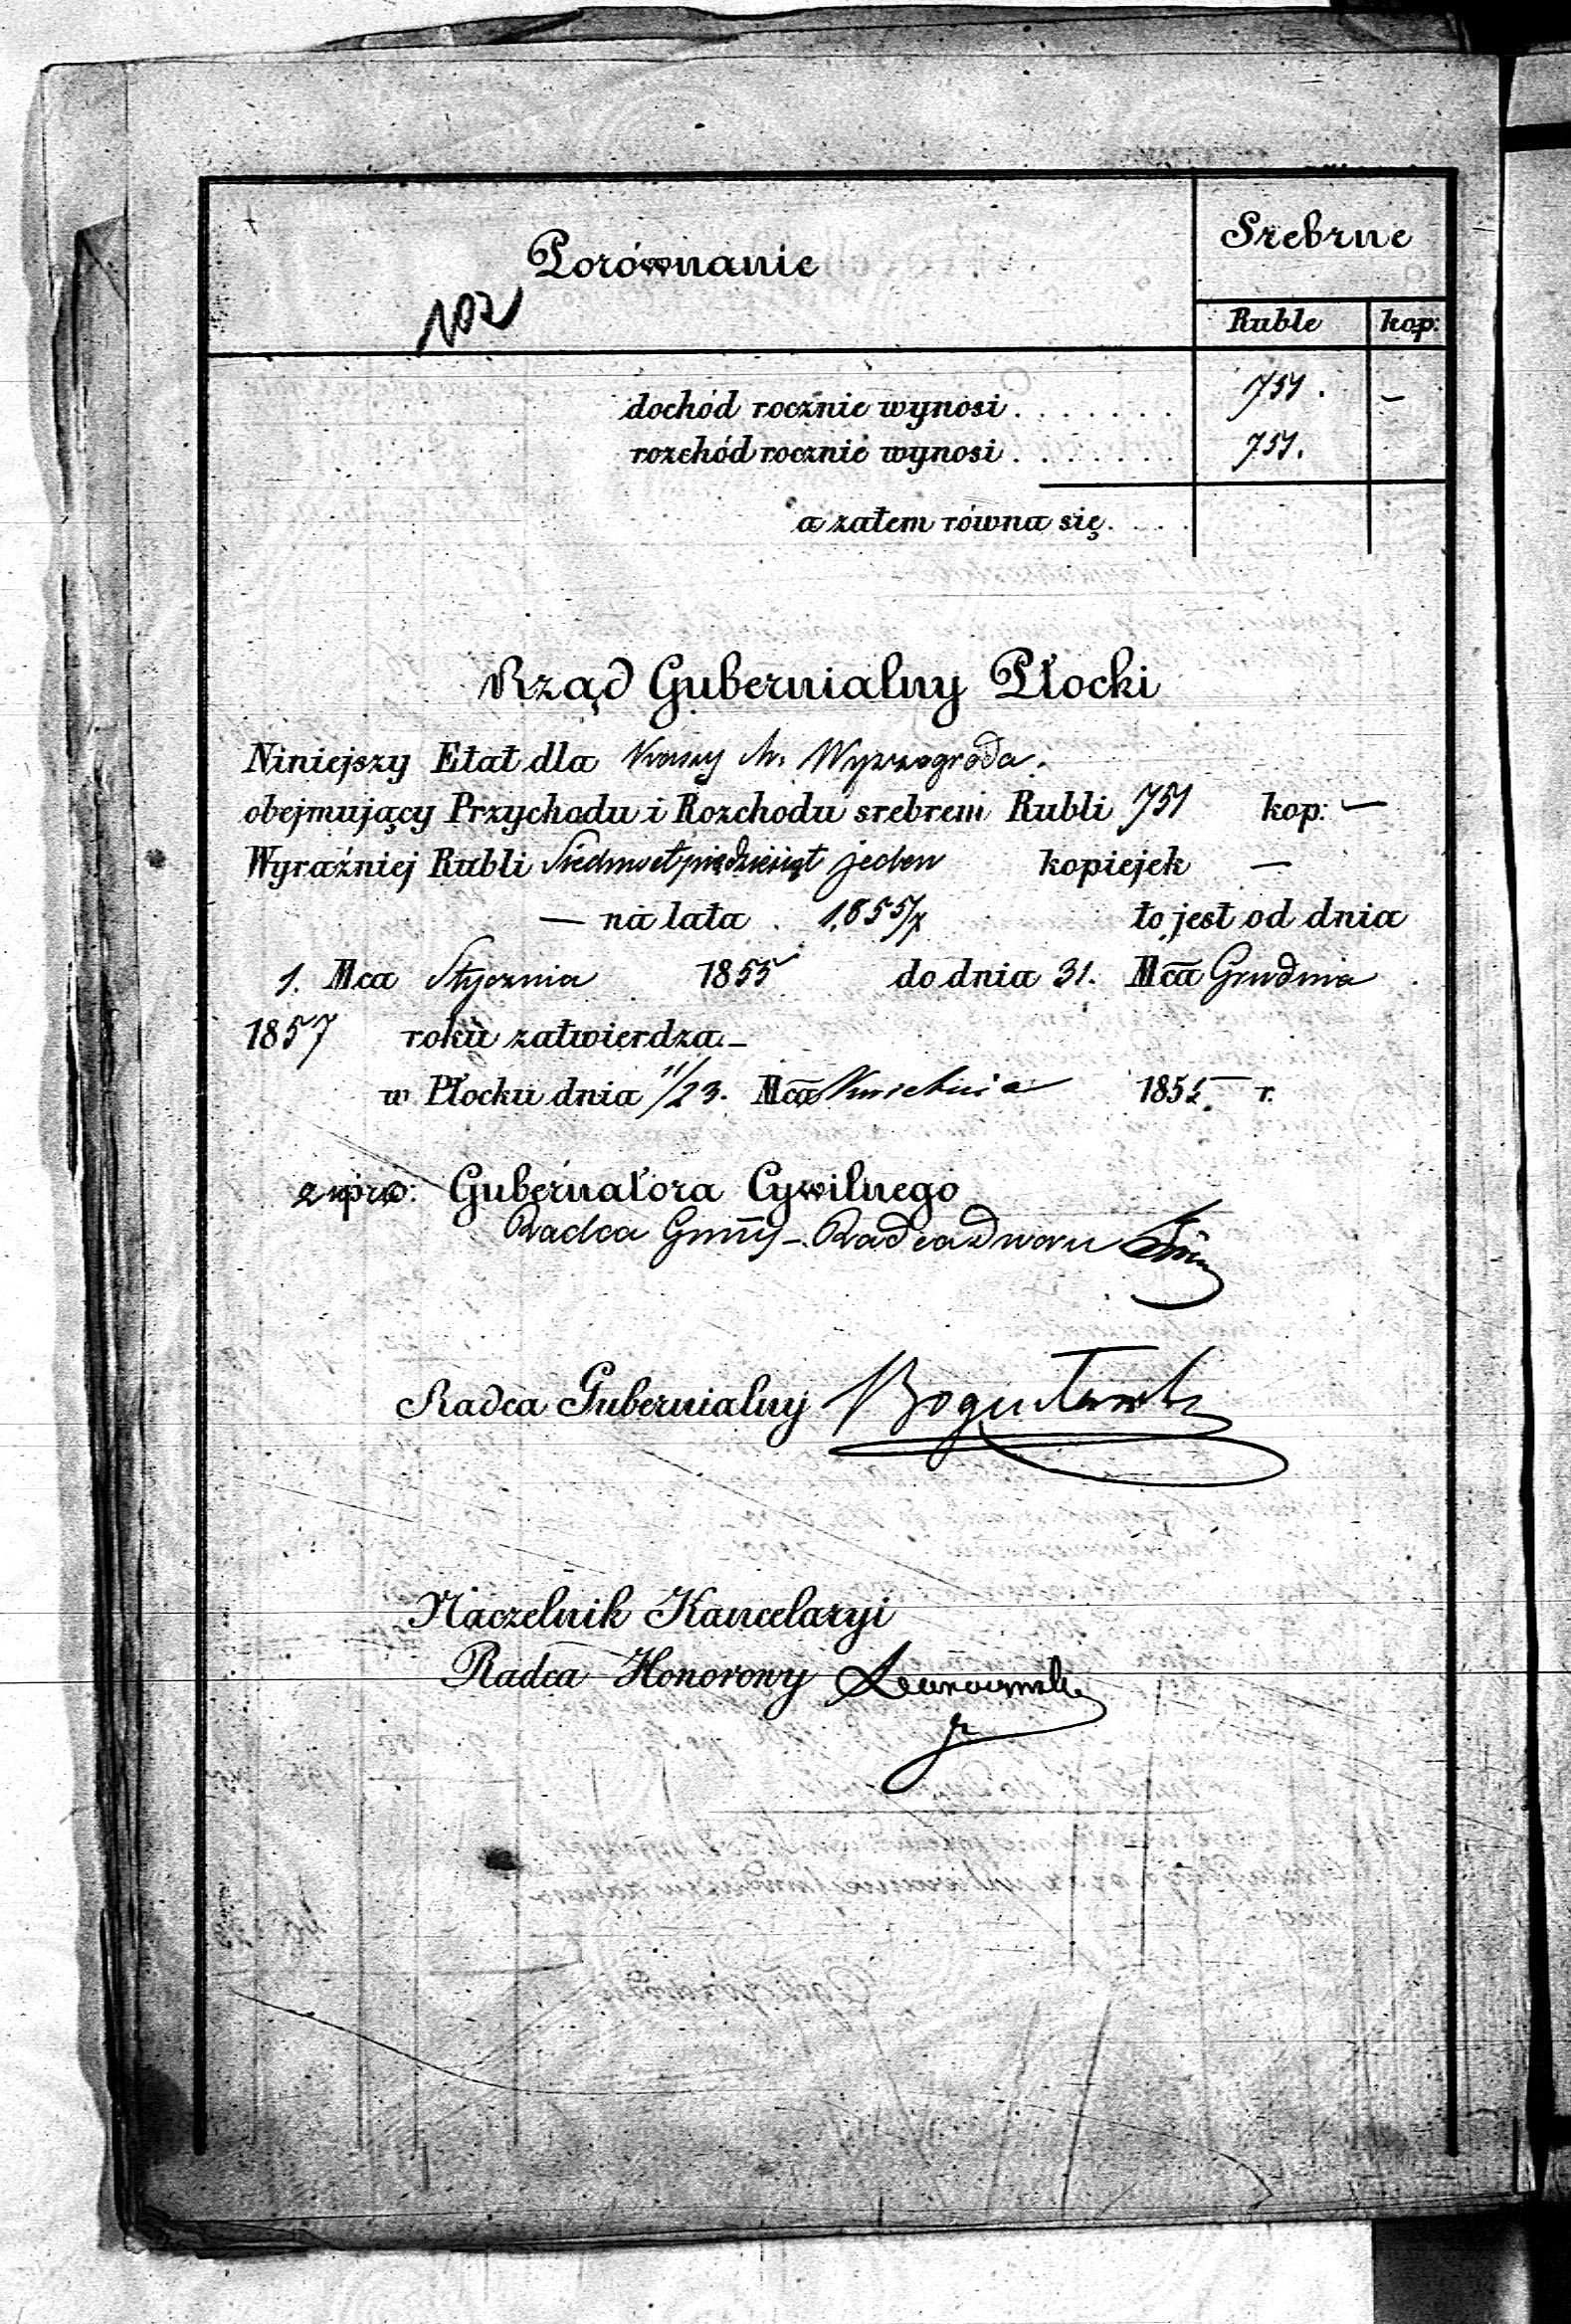 Porównanie
Srebrne
Ruble kop:
102
dochód rocznie wynosi . . . . . . . 751. –
rozchód rocznie wynosi . . . . . . . 751.
a zatem równa się. . . .
Rząd Gubernialny Płocki
Niniejszy Etat dla Kassy M. Wyszogroda.
obejmujący Przychodu i Rozchodu srebrem Rubli 751 kop: —
Wyraźniej Rubli Siedmset pięcdziesiąt jeden kopiejek —
— na lata 1855/7 to jest od dnia
1. Mca Stycznia 1855 do dnia 31. Mca Grudnia
1857 roku zatwierdza.–
w Płocku dnia 11/23. Mca Kwietnia 1855 r.
Gubernatora Cywilnego
Radca Radca Dworu
Radca Gubernialny Bogusławski
Naczelnik Kancelaryi
Radca Honorowy